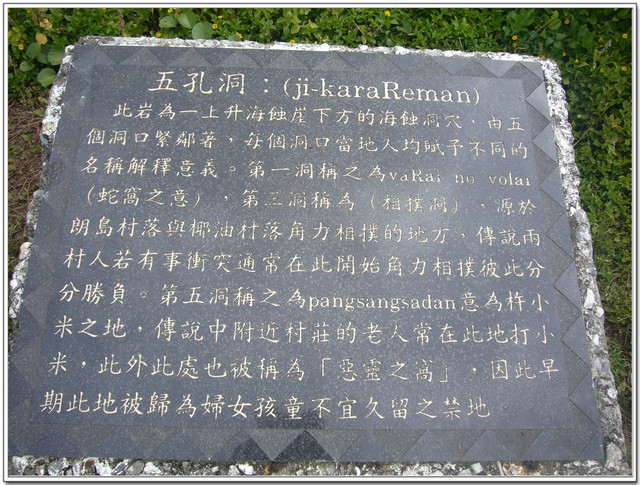 五孔洞：(ji-karaReman)
此岩為一上升海蝕崖下方的海蝕洞穴，由五
個洞口緊鄰著，每個洞口當地人均賦予不同的
名稱解釋意義。第一洞稱之為vaRai no volai
（蛇窩之意），第三洞稱為（相撲洞），源於
朗島村落與椰油村落角力相撲的地方，傳說兩
村人若有事衝突通常在此開始角力相撲彼此分
分勝負。第五洞稱之為pangsangsadan意為杵小
米之地，傳說中附近村莊的老人常在此地打小
米，此外此處也被稱為「惡靈之窩」，因此早
期此地被歸為婦女孩童不宜久留之禁地。